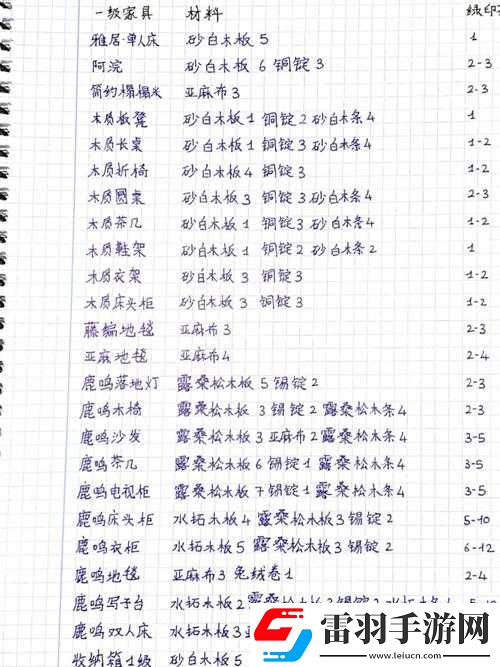 一级家具 材料
雅居·单人床 砂白木板5 1
阿浣 砂白木板6 铜锭3 2-3
简约榻榻米 亚麻布3 2-3
木质板凳 砂白木板1 铜锭2 砂白木条4 1
木质长桌 砂白木板1 铜锭3 砂白木条4 1-2
木质折椅 砂白木板4 铜锭3 1-2
木质圆桌 砂白木板3 铜锭3 砂白木条4 2-3
木质茶几 砂白木板1 铜锭3 砂白木条4 1-2
木质鞋架 砂白木板1 铜锭2 砂白木条2 1
木质衣架 砂白木板3 铜锭3 1-2
木质床头柜 砂白木板3 铜锭3 1-2
藤编地毯 亚麻布3 2-3
亚麻地毯 亚麻布4 2-4
鹿鸣落地灯 露桑松木板5 锡锭2 2-3
鹿鸣木椅 露桑松木板3 锡锭2 露桑松木条4 2-3
鹿鸣沙发 露桑松木板3 亚麻布2 露桑松木条4 3-5
鹿鸣茶几 露桑松木板6 锡锭1 露桑松木条4 3-5
鹿鸣电视柜 露桑松木板7 锡锭1 露桑松木条4 3-5
鹿鸣床头柜 水拓木板4 露桑松木板3 锡锭2 5-10
鹿鸣衣柜 水拓木板5 露桑松木板3 锡锭2 6-12
鹿鸣地毯 亚麻布3 兔绒卷1 2-4
鹿鸣写字台 水拓木板2
鹿鸣双人床 水拓木板3
收纳箱1级 砂白木板5
雷羽手游网
www.leiucn.com